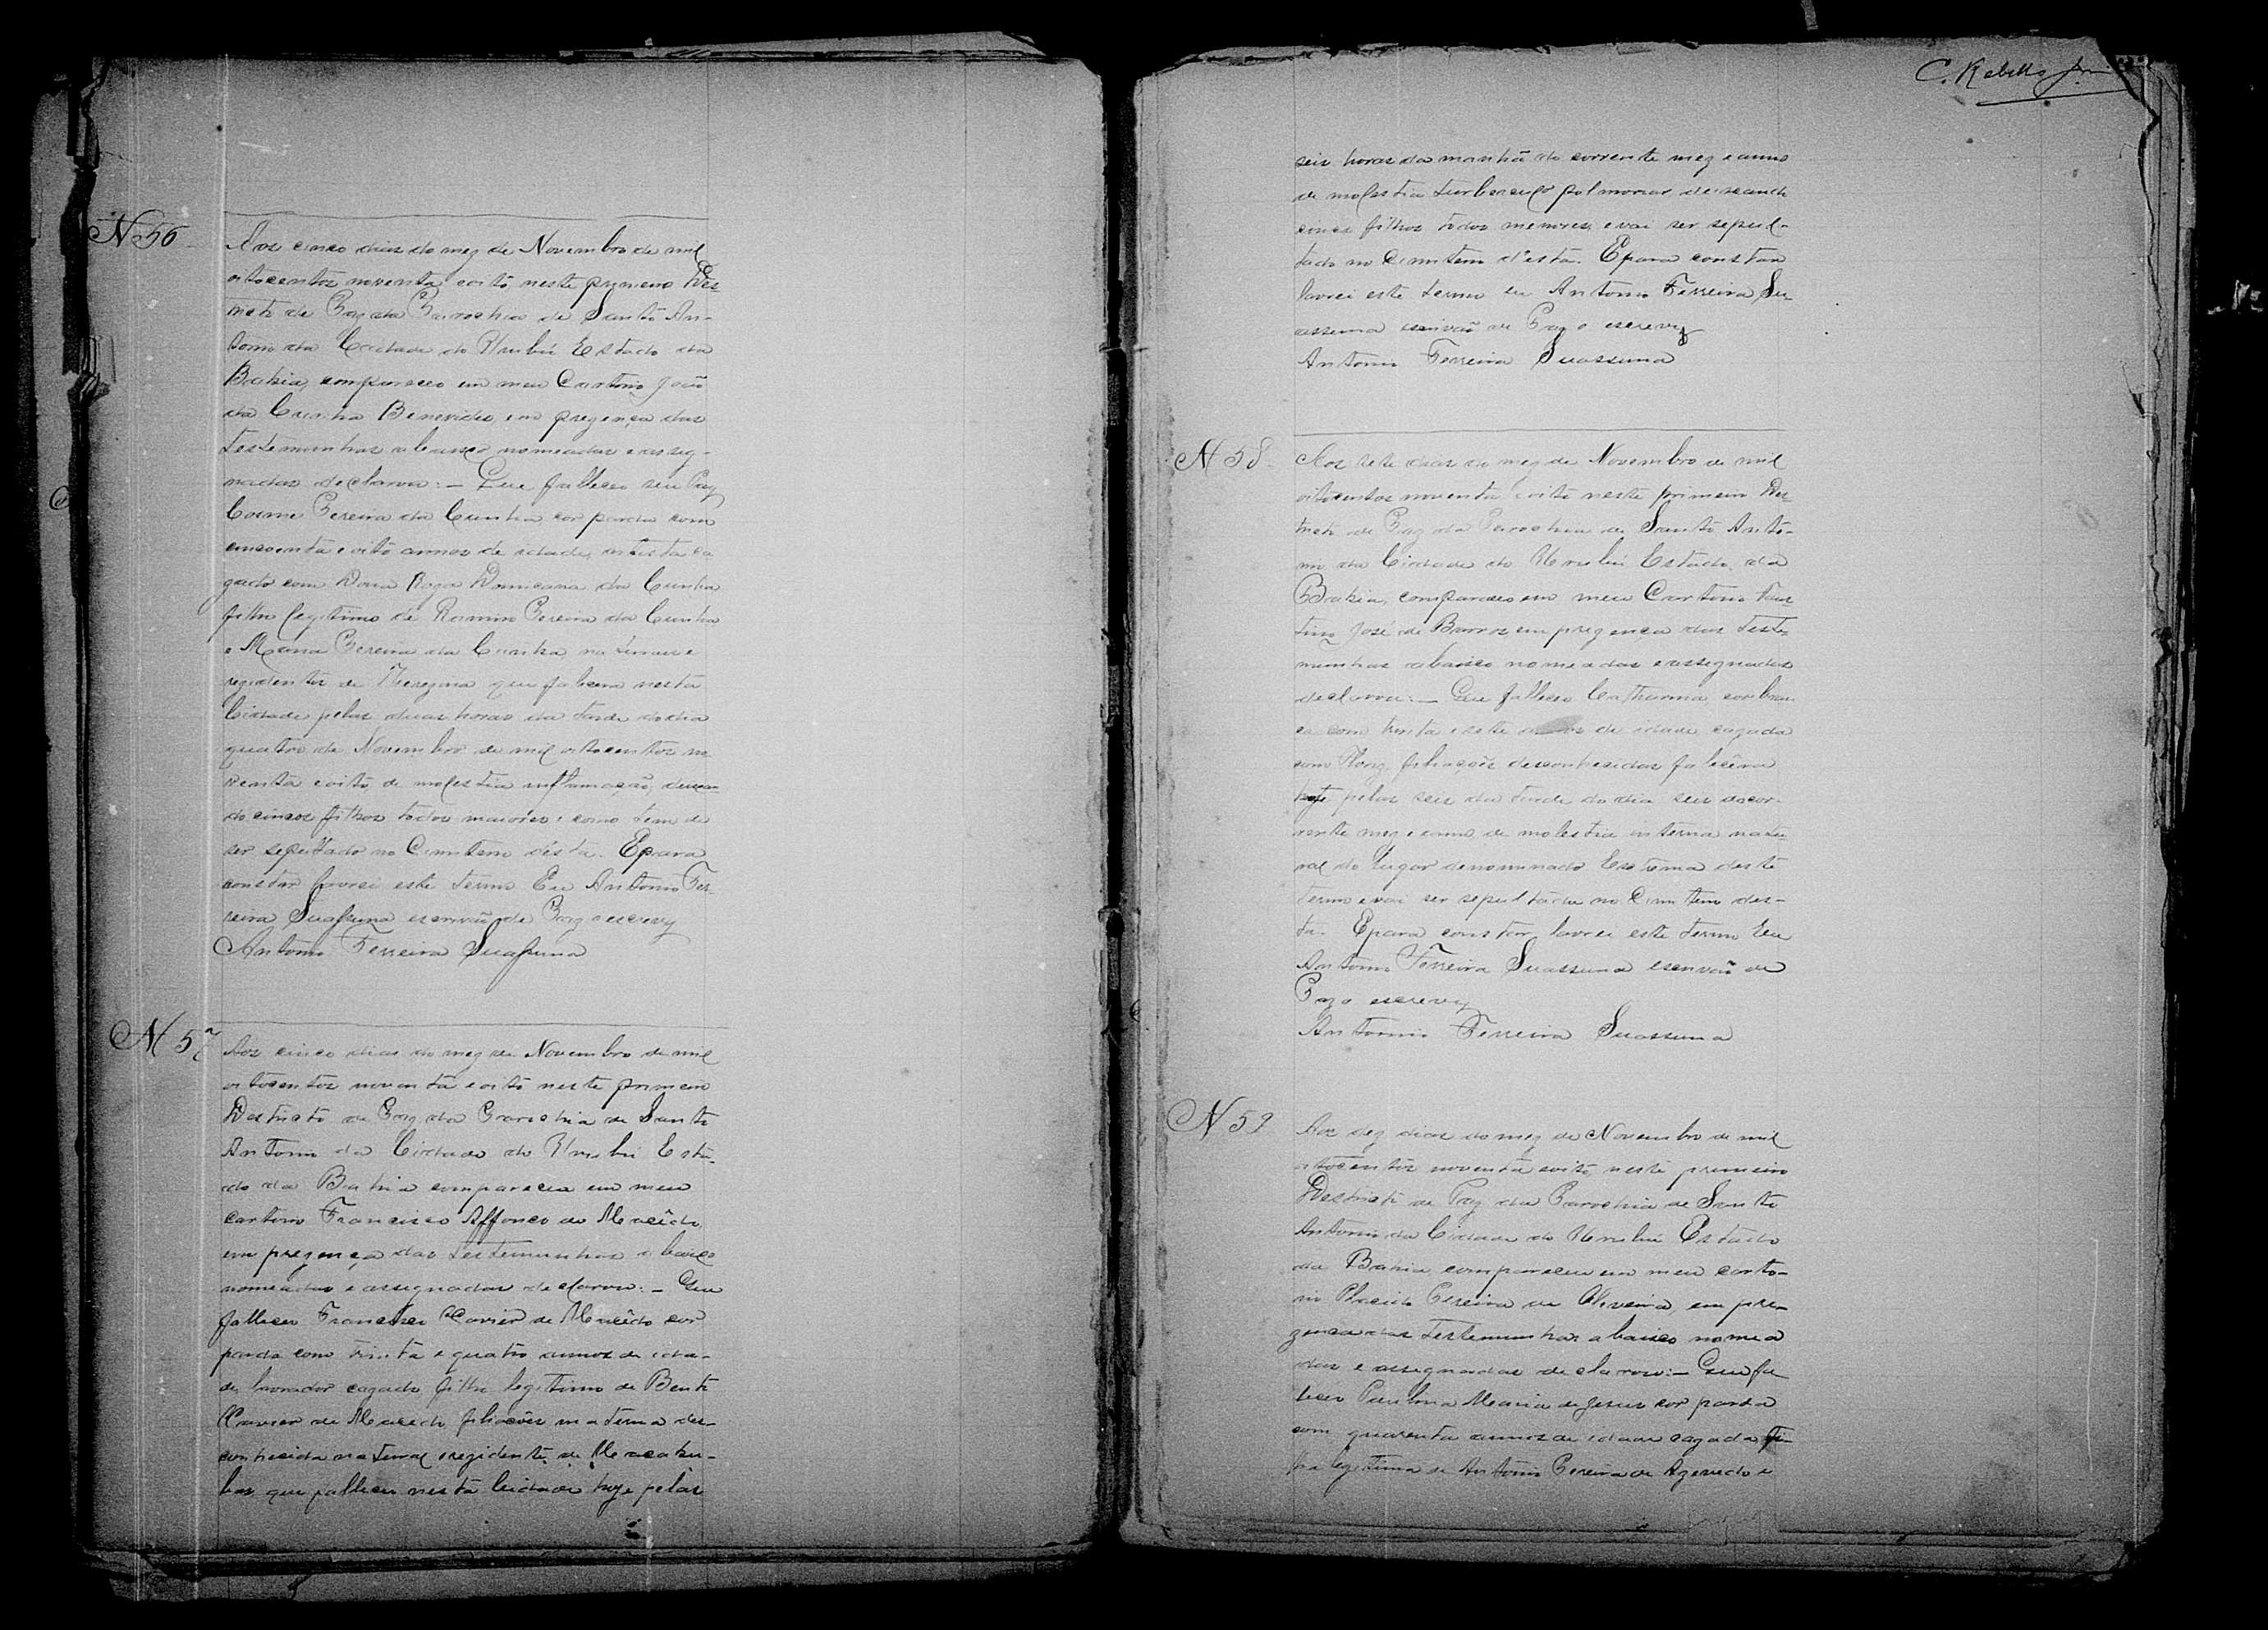 N 56
Aos cinco dias do mez de Novembro de mil
oitocentos noventa e oito neste primeiro Des-
tricto de Paz da Parochia de Santo An-
tonio da Cidade do Urubú Estado da
Bahia, compareceo em meu Cartorio João
da Cunha Benevides, em prezença das
testemunhas abaixo nomeadas e asseg-
nadas declarou: – Que falleceo seu Pay
Cosme Pereira da Cunha, cor parda com
cincoenta e oito annos de idade, ca
zado com Dona Roza Domiciana da Cunha
filho legitimo de Ramiro Pereira da Cunha
e Maria Pereira da Cunha, naturaes e
rezidentes de que falecera nesta
Cidade pelas duas horas da tarde do dia
quatro de Novembro de mil oitocentos no
venta e oito, de molestia inflamação, deixan-
do cincos filhos todos maióres e como tem de
ser sepultado no Cimiterio désta. E para
constar lavrei este termo Eu Antonio Fer-
reira Suassuna escrivão de Paz o escrevy
Antonio Ferreira Suassuna
N 57
Aos cinco dias do mez de Novembro de mil
oitocentos noventa e oito neste primeiro
Destricto de Paz da Parochia de Santo
Antonio da Cidade do Urubú Esta-
do da Bahia compareceu em meu
cartorio Francisco Affonco de Macêdo,
em prezença das testemunhas abaico
nomeadas e assegnadas declarou: – Que
falleceu Francisco Xavier de Macêdo cor
parda com trinta e quatro annos de ida-
de, lavrador cazado filho legitimo de Bento
Xavier de Macedo filiacões materna des-
conhecida natural e rezidente de Macahu-
bas, que falleceu nesta Cidade hoje pelas
C. Rabello Jor
seis horas da manhã do corrente mez e anno
de molestia turberculo polmonar, deixando
cinco filhos todos menores, e vai ser sepul-
tado no Cimiterio d'esta. E para constar
lavrei este termo eu Antonio Ferreira Su-
assuna escrivão de Paz o escrevy
Antonio Ferreira Suassuna
N 58
Aos sete dias do mez de Novembro de mil
oitocentos noventa e oito neste primeiro Des-
tricto de Paz da Parochia de Santo Anto-
nio da Cidade do Urubú Estado da
Bahia, compareceo em meu Cartorio Faus
tino José de Barros em prezenca das teste-
munhas abaixo nomeadas e assegnadas
declarou: – Que falleceo Catharina cor bran-
ca com trinta e sete annos de idade, cazada
com filiações desconhecidas falecêra
hoje pelas seis da tarde do dia seis do cor-
rente mez e anno de molestia interna natu-
ral do lugar denominado deste
termo e vai ser sepultada no Cimiterio des-
ta. E para constar lavrei este termo Eu
Antonio Ferreira Suassuna escrivão de
Paz o escrevy
Antonio Ferreira Suassuna
N 59
Aos dez dias do mez de Novembro de mil
oitocentos noventa e oito, neste primeiro
Destricto de Paz da Parochia de Santo
Antonio da Cidade do Urubú Estado
da Bahia compareceu em meu carto-
rio Placido Pereira de Oliveira, em pre-
zenca das testemunhas abaixo nomea
das e assegnadas declarou: – Que fa
leceu Paulina Maria de Jesus cor parda
com quarenta annos de idade cazada fi-
lha legitima de Antonio Pereira de Azevedo e